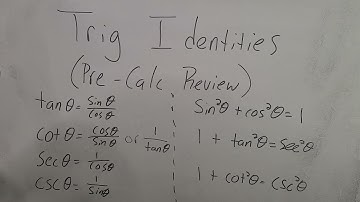 Trig Identities
(Pre-Calc Review)
tanθ = sinθ/cosθ
cotθ = cosθ/sinθ or 1/tanθ
secθ = 1/cosθ
cscθ = 1/sinθ
sin²θ + cos²θ = 1
1 + tan²θ = sec²θ
1 + cot²θ = csc²θ